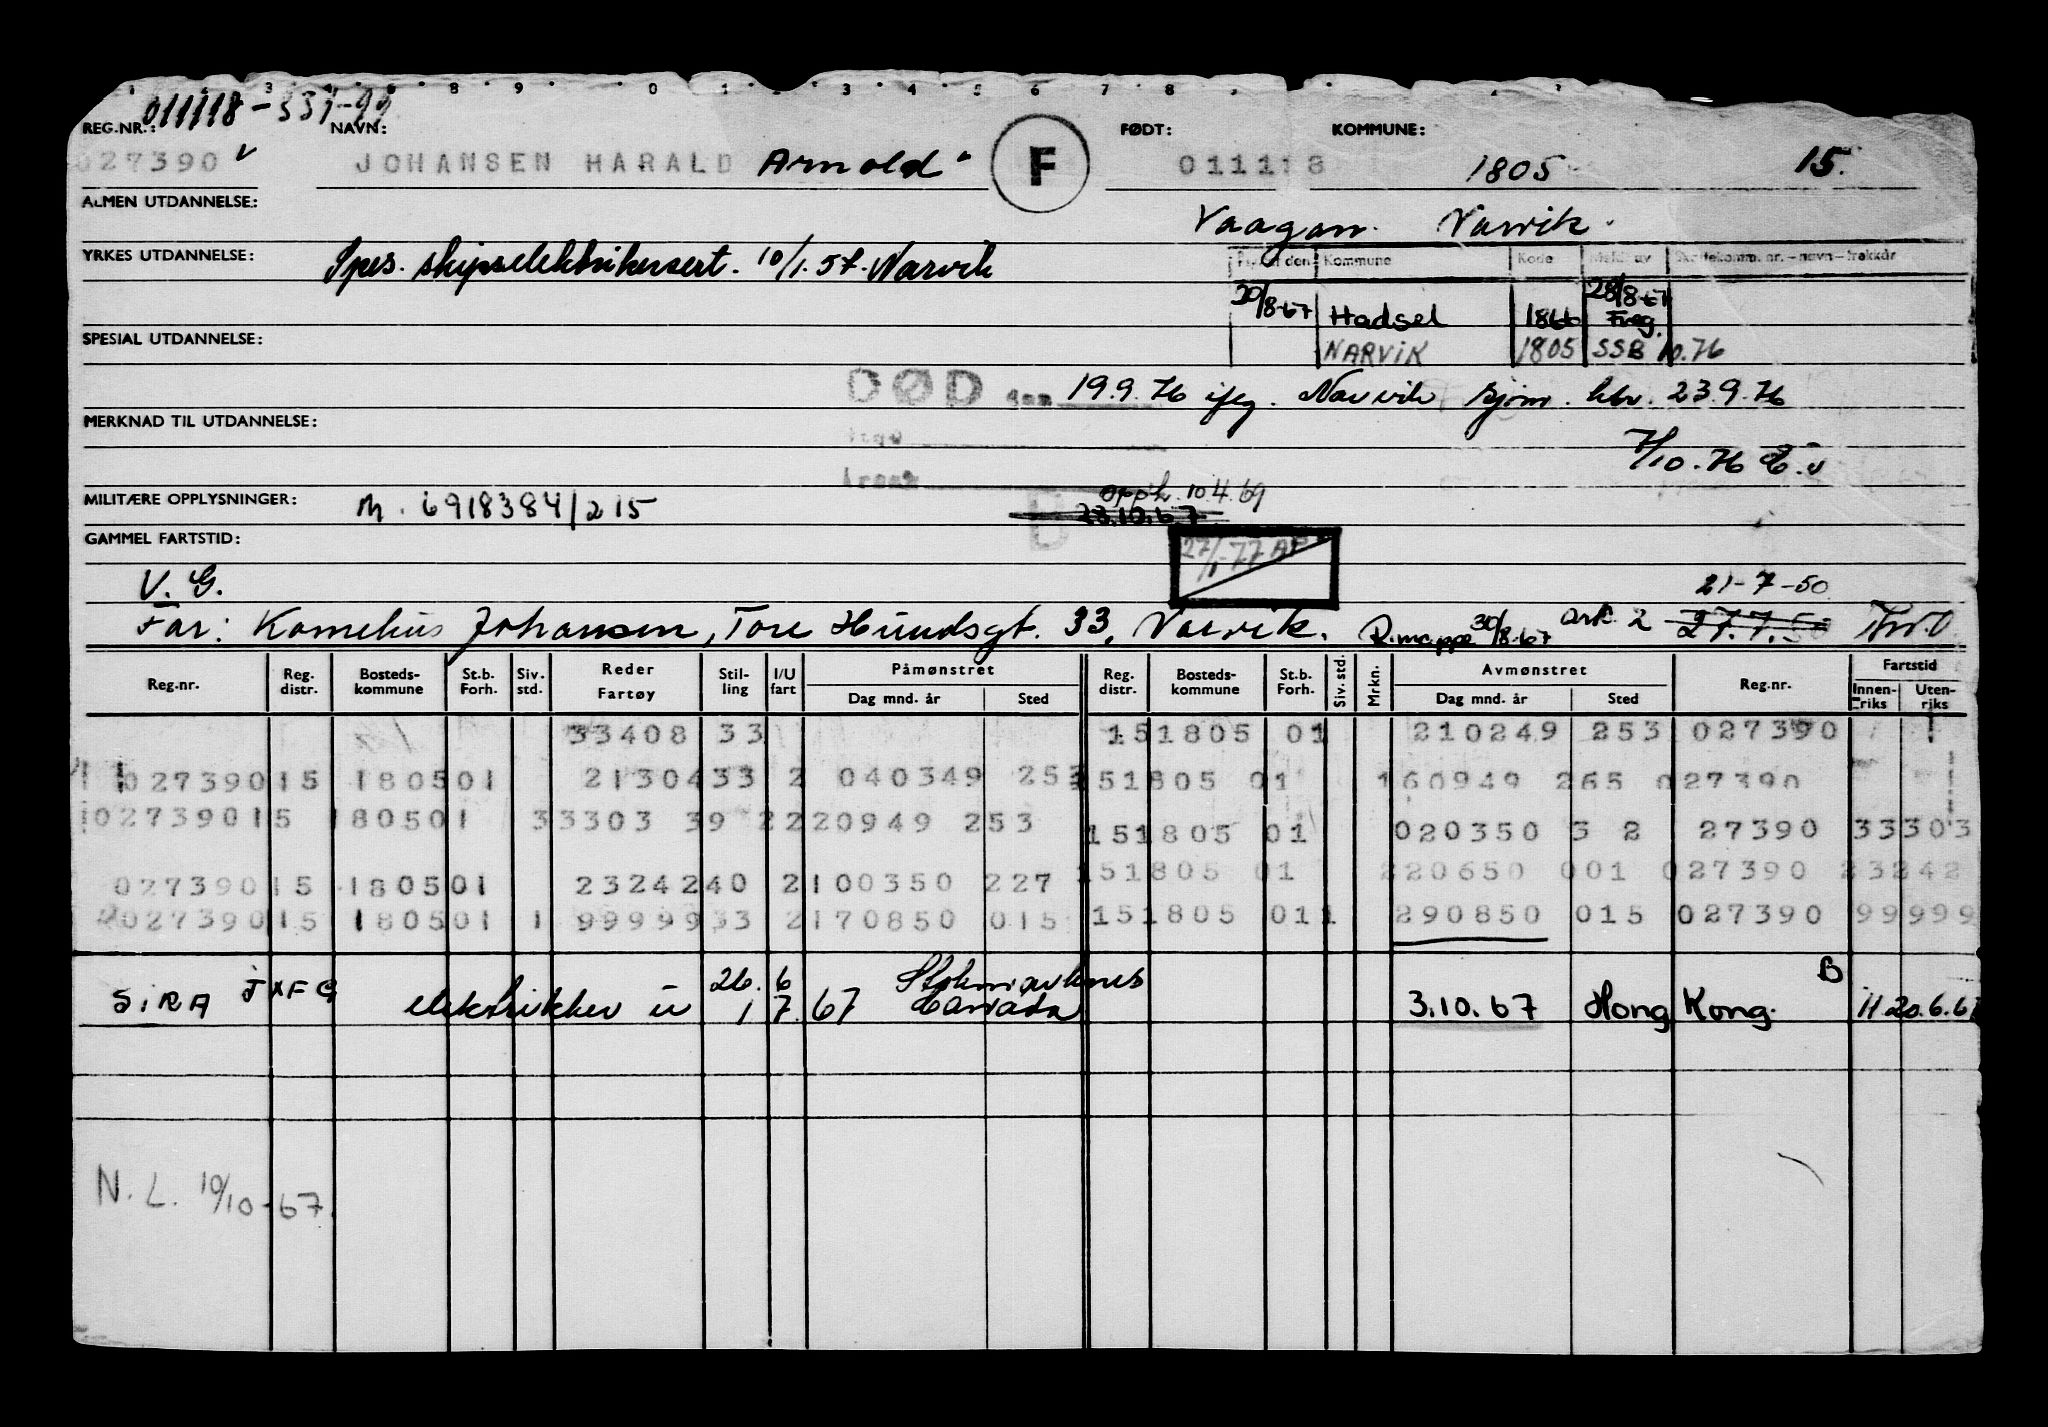 011118-
REG.NR.: NAVN: FØDT: KOMMUNE:
027390 v JOHANSEN HARALD Arnold F 011118 1805 15.
ALMEN UTDANNELSE:
Vaagan. Narvik.
YRKES UTDANNELSE: Spes. skipselektrikersert. 10/1.57. Narvik
Kommune Kode
30/8-67 Hadsel 1866 28/8-67 Freg.
SPESIAL UTDANNELSE:
NARVIK 1805 SSB 10.76
DØD den 19.9.76 Narvik 23.9.76
MERKNAD TIL UTDANNELSE:
7/10.76
MILITÆRE OPPLYSNINGER: M. 6918384/215 opph. 10.4.69
23.10.67
GAMMEL FARTSTID: 27/1-77 AP
V. G. 21-7-50
Far: Kornelius Johansen, Tore Hundsgt. 33, Narvik. R.mappe 30/8-67 ark. 2
Reg.nr. Reg. distr. Bosteds-kommune St.b. Forh. Siv. std. Reder Fartøy Stil-ling I/U fart Påmønstret Dag mnd. år Sted Reg. distr. Bosteds-kommune St.b. Forh. Siv. std. Mrkn. Avmønstret Dag mnd. år Sted Reg.nr. Fartstid Innen-riks Uten-riks
33408 33 151805 01 210249 253 027390
027390 15 1805 01 21304 33 2 040349 253 151805 01 160949 265 027390
027390 15 1805 01 33303 39 2 220949 253 151805 01 020350 3 2 27390 33303
027390 15 1805 01 23242 40 2 100350 227 151805 01 220650 001 027390 23242
027390 15 1805 01 1 99999 33 2 170850 015 151805 01 1 290850 015 027390 99999
26. 6
B
SIRA JXFG elektriker u 1 7. 67 Canada 3.10.67 Hong Kong. 20.6.67
N. L. 10/10-67.